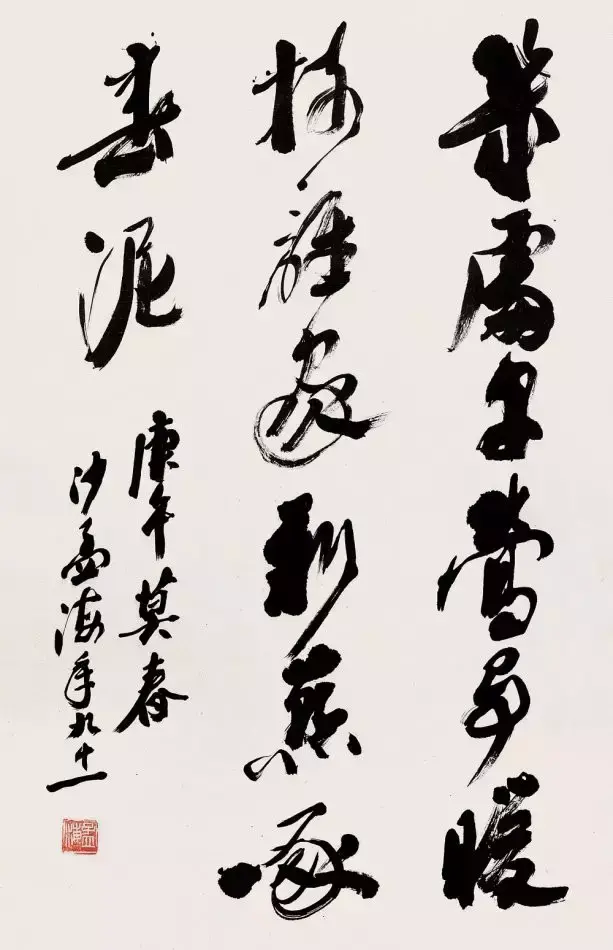 幾處早鶯爭暖
樹誰家新燕啄
春泥
庚午莫春
沙孟海年九十一
孟海